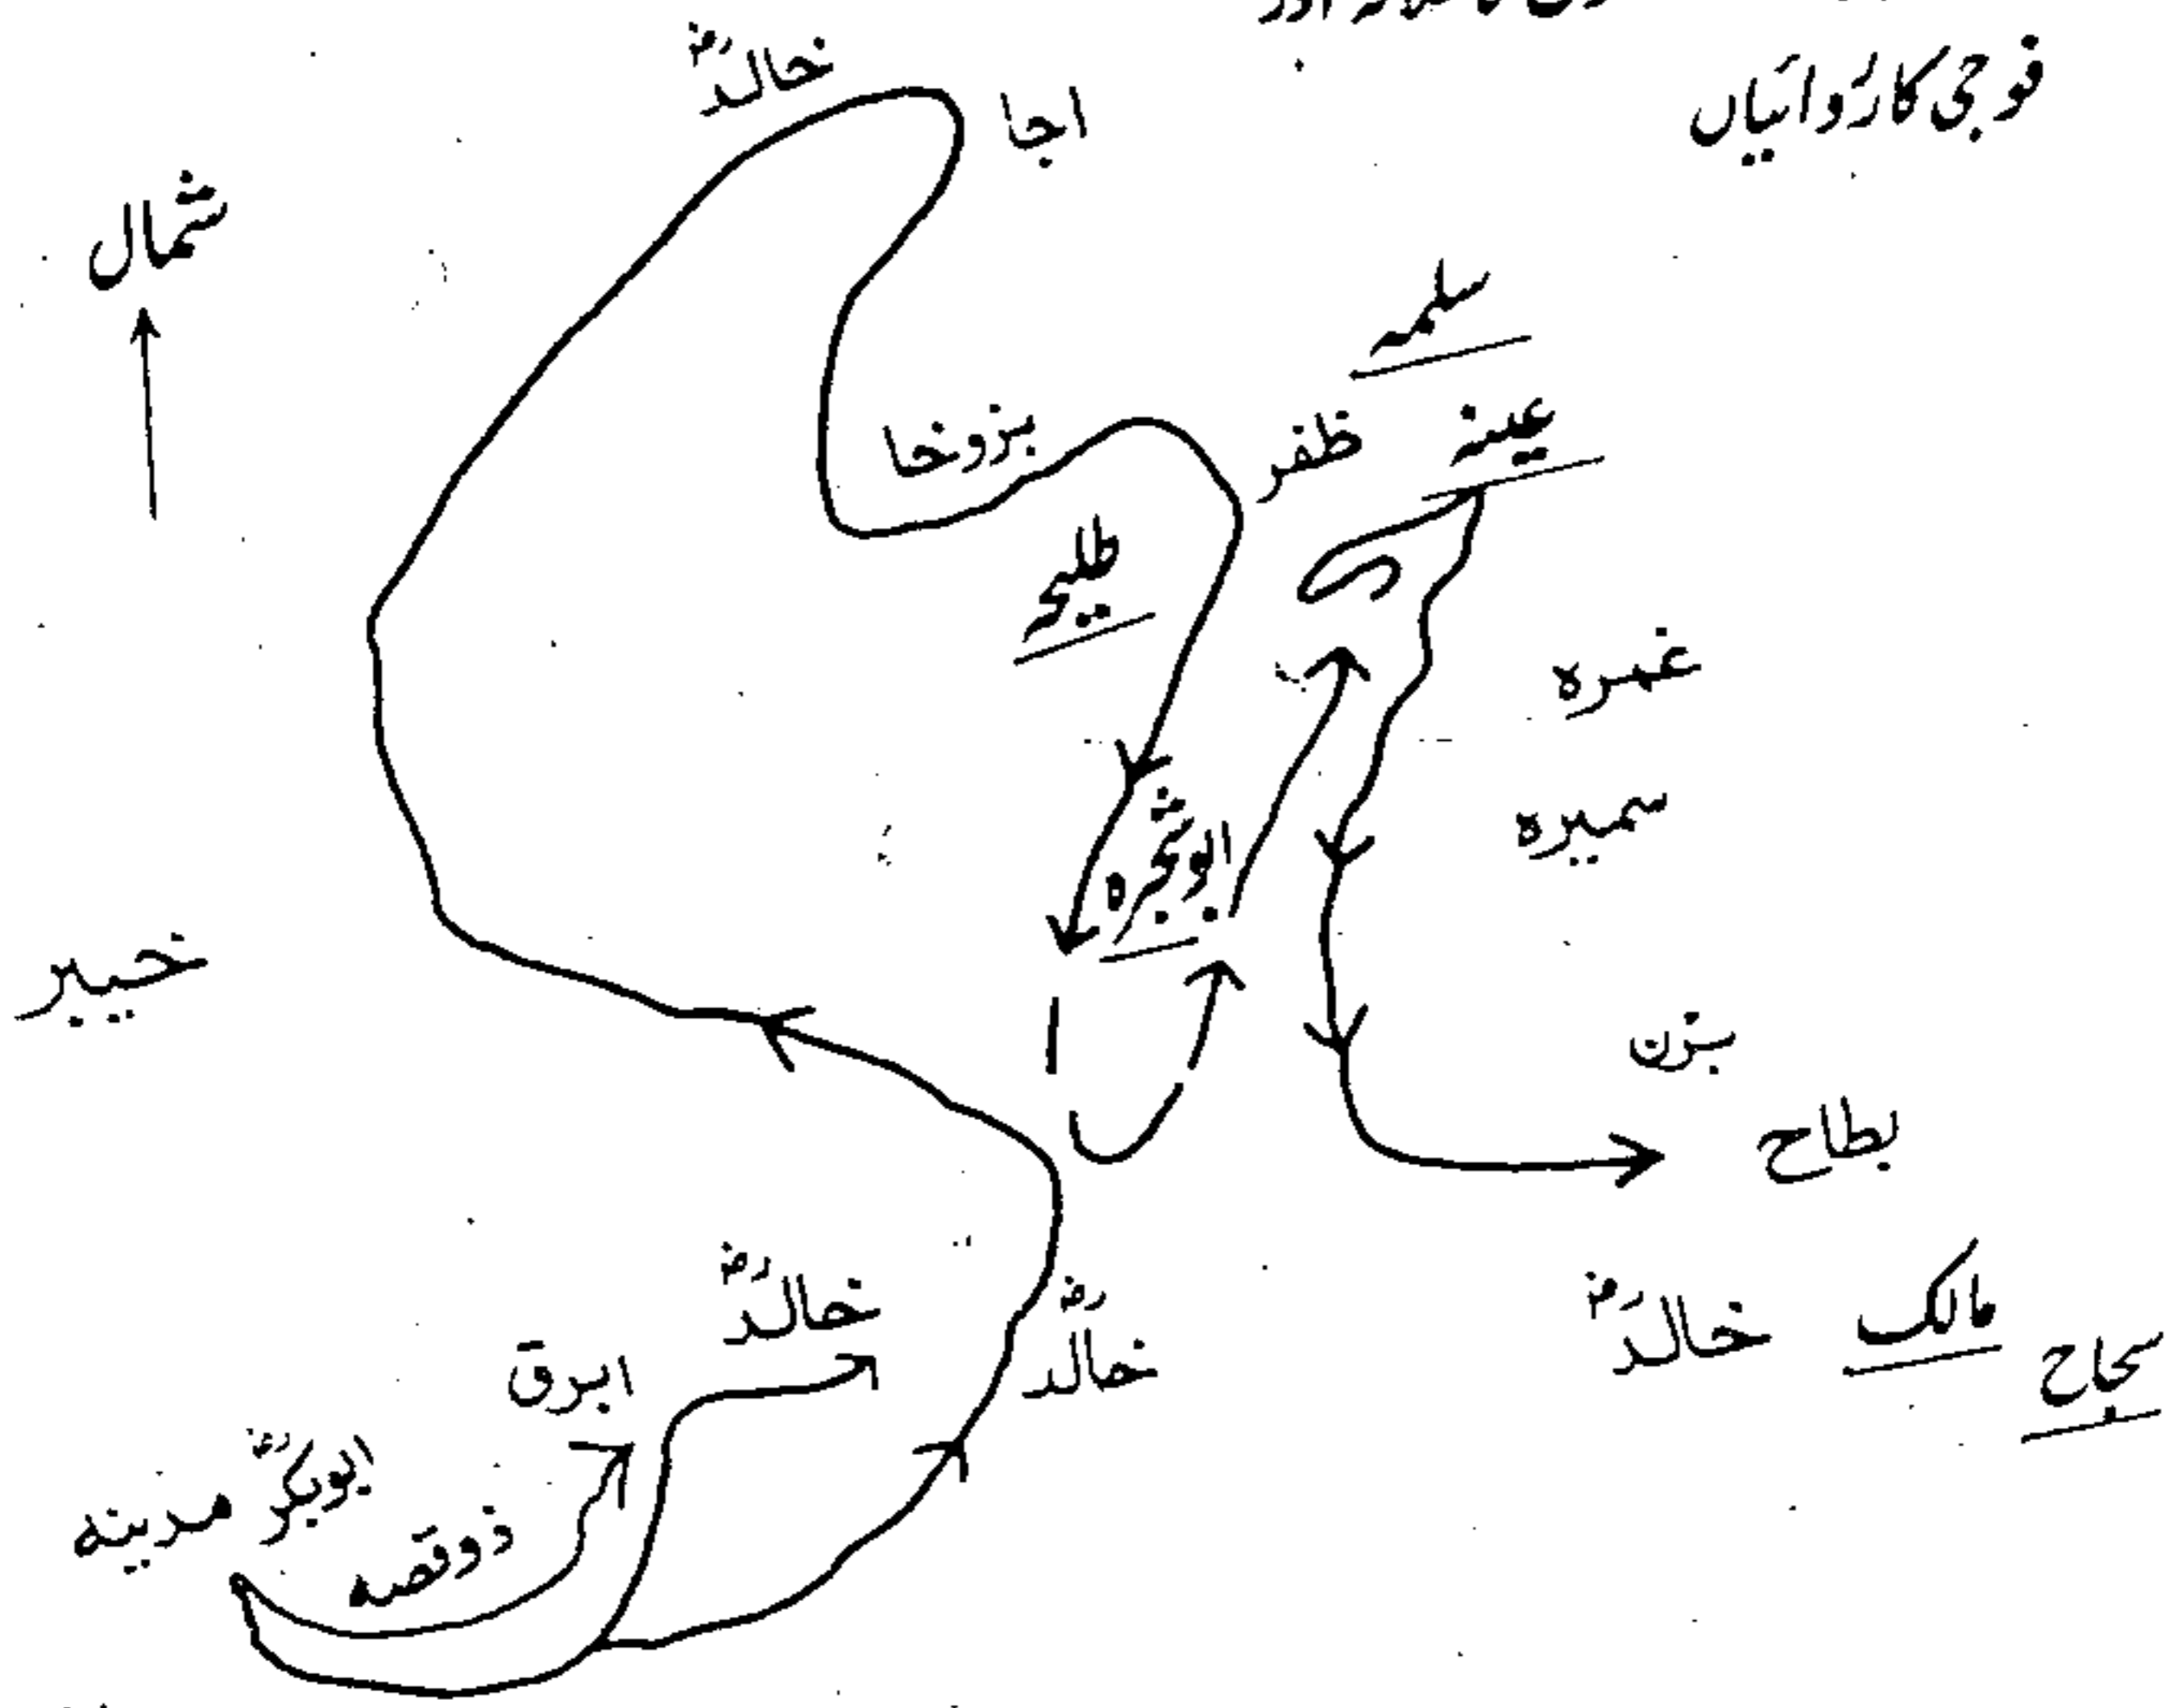 فوجی کاروائیاں
خالدؓ
اجا
شمال
سلمہ
عینہ
ظفر
بزوخا
طلیحہ
غمرہ
سمیرہ
ابوبجرہ
خیبر
بزن
بطاح
خالدؓ
خالدؓ
خالدؓ
مالک
سجاح
ابرق
ابوبکرؓ
مدینہ
ذوقصہ